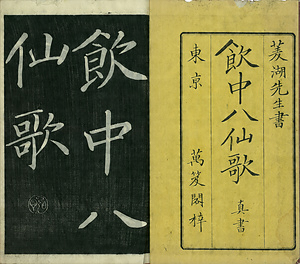 菱湖先生書
飲中八仙歌
真書
東京 萬笈閣梓
飲中八
仙歌